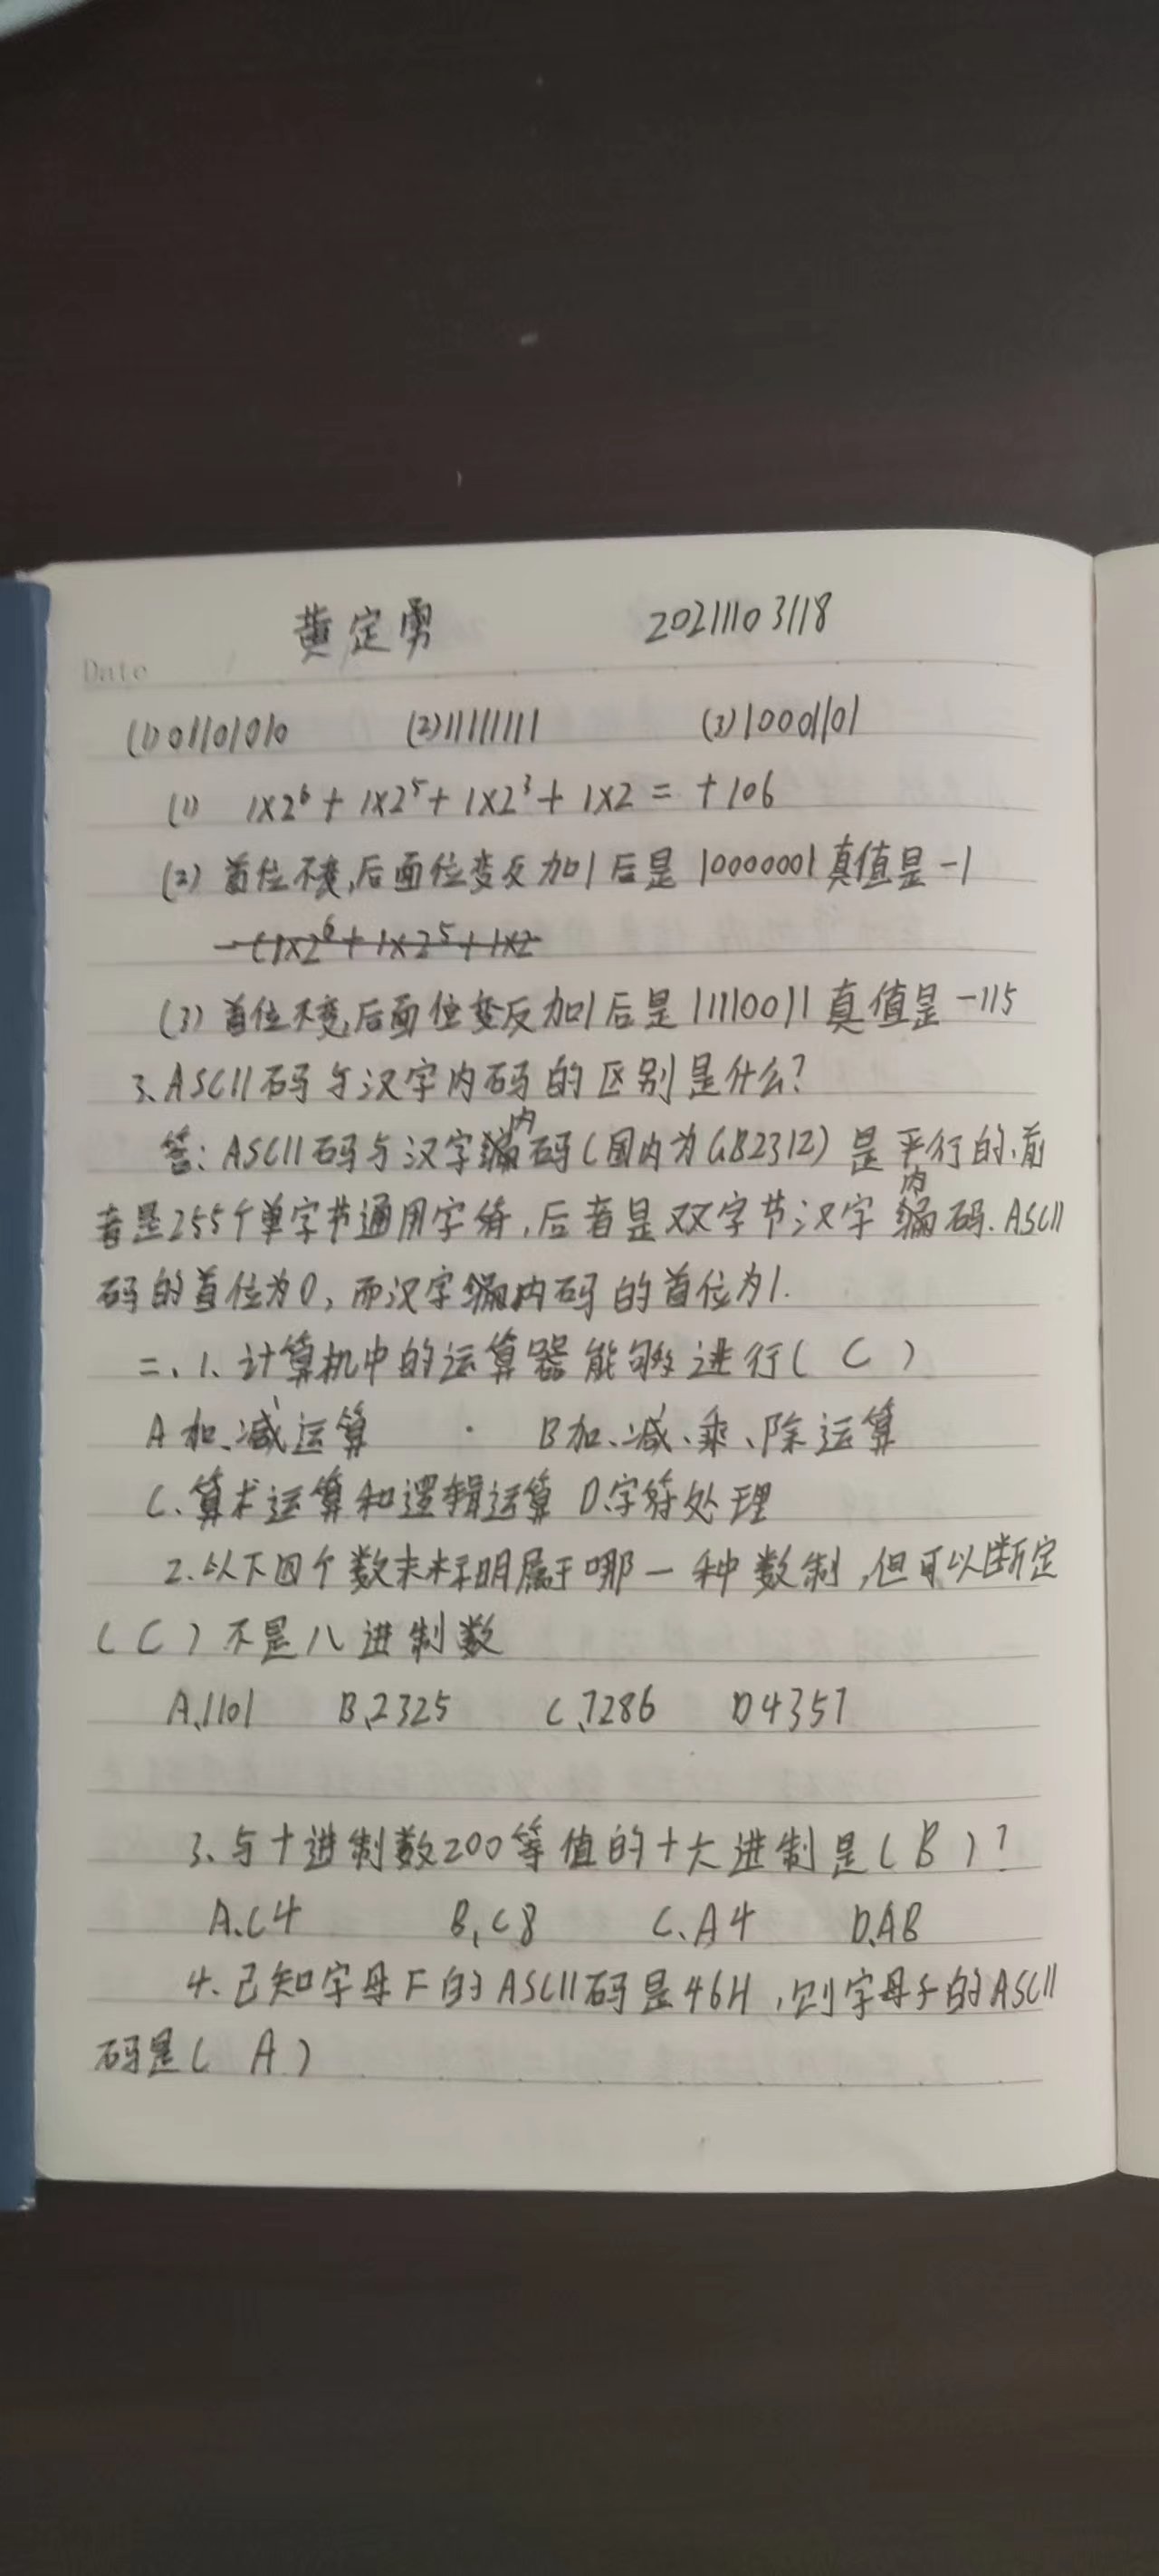 黄定勇 20211103118
Date
(1)01101010 (2)11111111 (3)10001101
(1) 1×2⁶+1×2⁵+1×2³+1×2=+106
(2) 首位不变,后面位变反加1后是10000001真值是-1
-(1×2⁶+1×2⁵+1×2
(3) 首位不变,后面位变反加1后是11110011真值是-115
3.ASCII码与汉字内码的区别是什么?
答:ASCII码与汉字内码(国内为GB2312)是平行的.前
者是255个单字节通用字符,后者是双字节汉字内码.ASCII
码的首位为0,而汉字内码的首位为1.
二、1、计算机中的运算器能够进行( C )
A加、减运算 B加、减、乘、除运算
C、算术运算和逻辑运算 D.字符处理
2.以下四个数未标明属于哪一种数制,但可以断定
(C)不是八进制数
A、1101 B、2325 C、7286 D4357
3、与十进制数200等值的十六进制是(B)?
A、C4 B、C8 C、A4 D、AB
4.已知字母F的ASCII码是46H,则字母f的ASCII
码是( A )